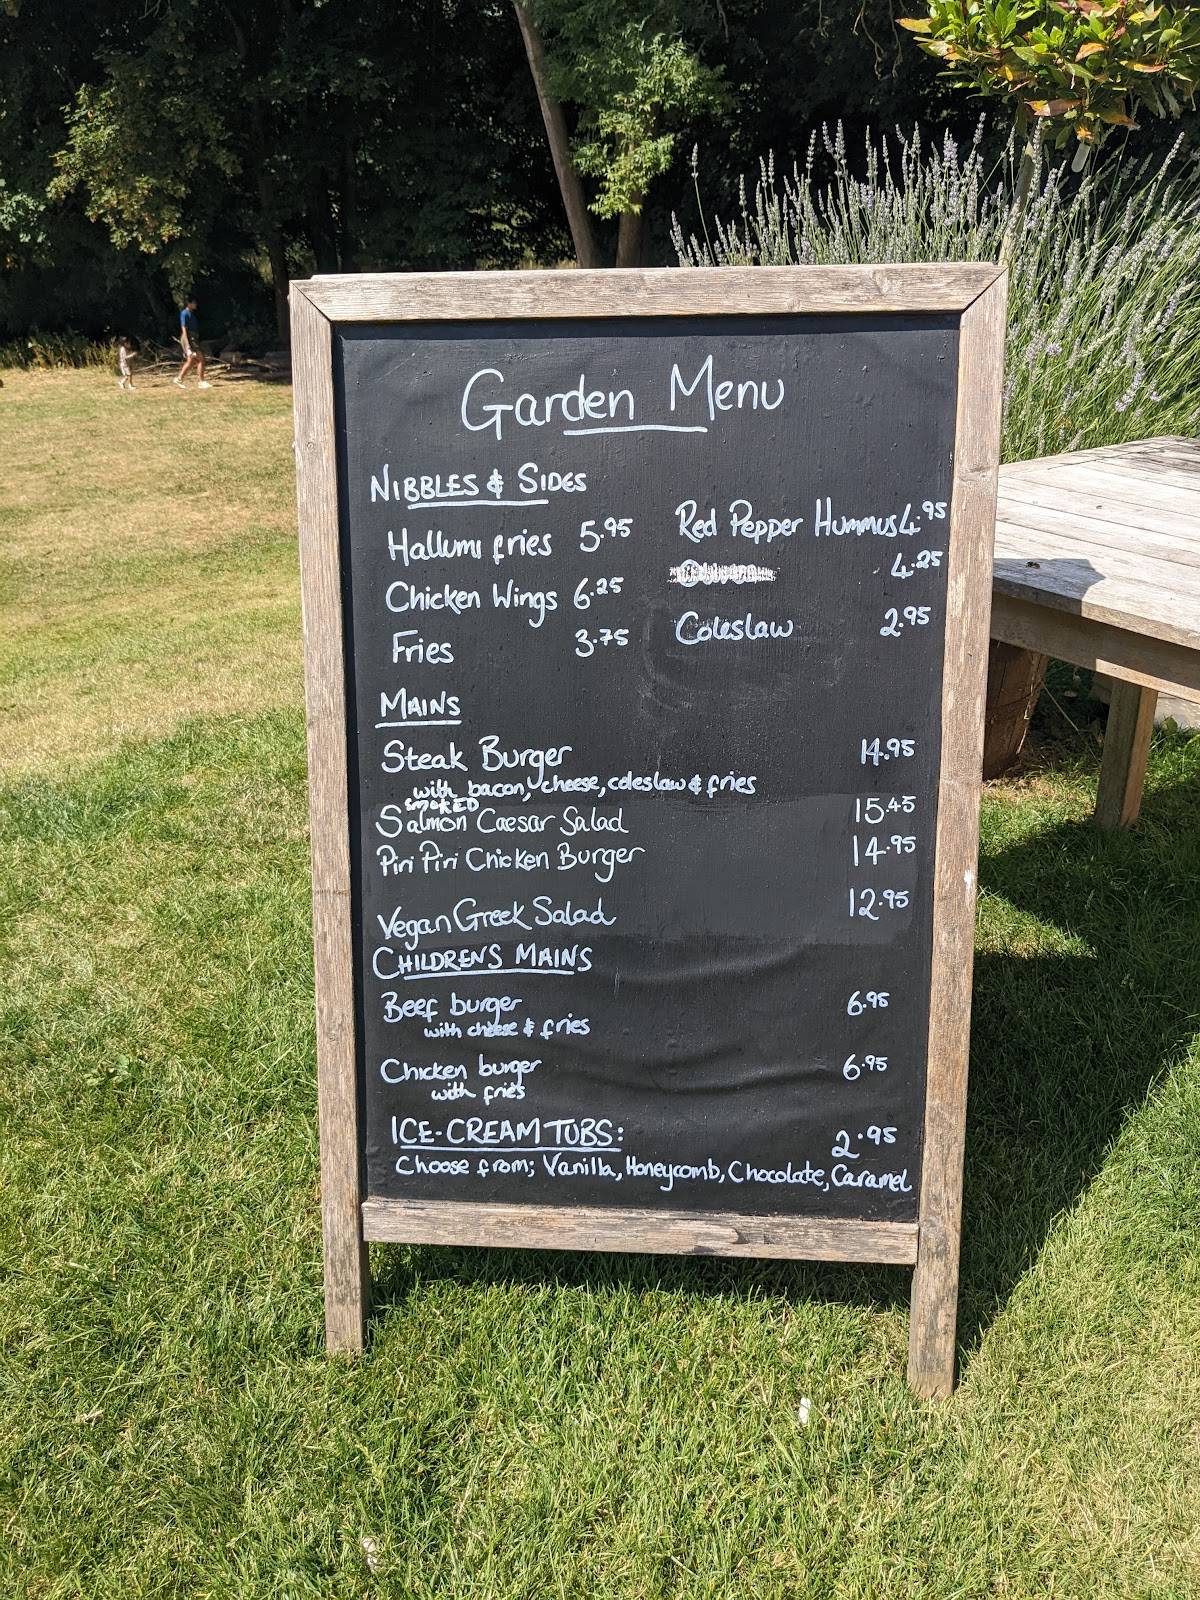 Garden Menu
NIBBLES & SIDES
Hallumi fries 5.95
Chicken Wings 6.25
Fries 3.75
Red Pepper Hummus 4.95
4.25
Coleslaw 2.95
MAINS
Steak Burger 14.95
with bacon, cheese, coleslaw & fries
SMOKED
Salmon Caesar Salad 15.45
Piri Piri Chicken Burger 14.95
Vegan Greek Salad 12.95
CHILDRENS MAINS
Beef burger 6.95
with cheese & fries
Chicken burger 6.95
with fries
ICE-CREAM TUBS: 2.95
Choose from; Vanilla, Honeycomb, Chocolate, Caramel